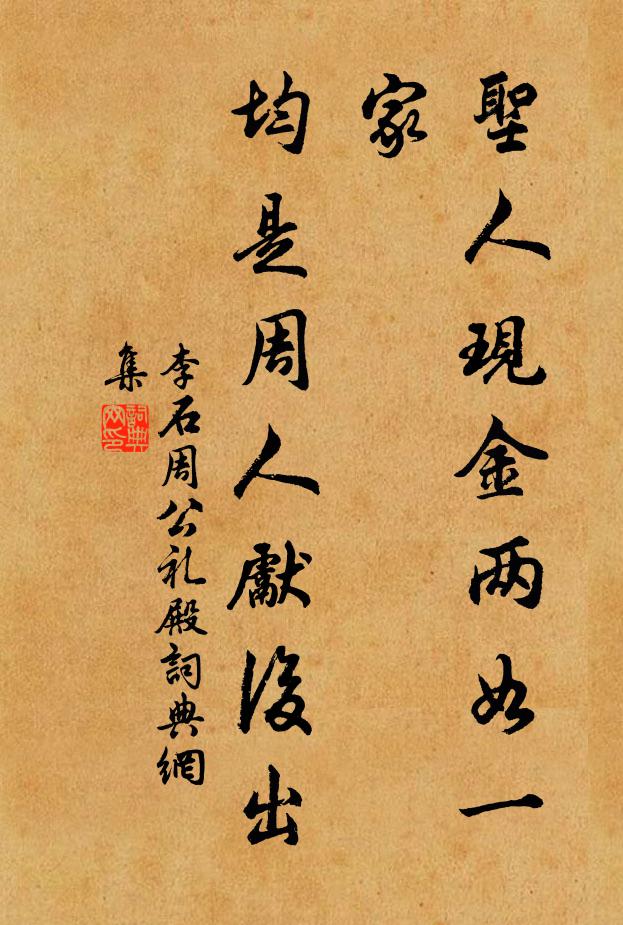 聖人現金两如一
家
均是周人獻後出
李石周公礼殿詞典網
集
詞典網印